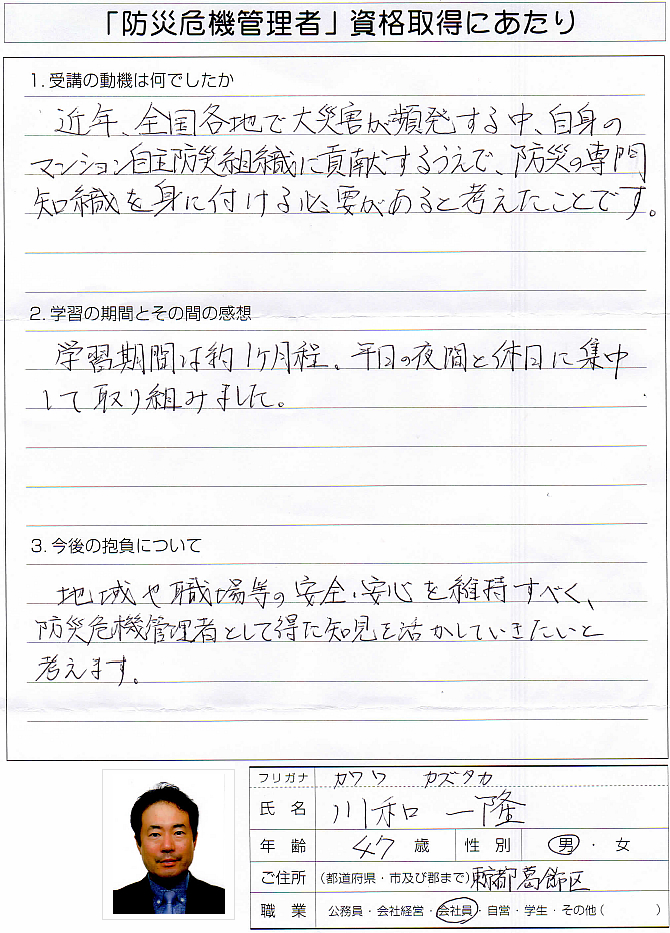 「防災危機管理者」資格取得にあたり
1. 受講の動機は何でしたか
近年、全国各地で大災害が頻発する中、自身の
マンション自主防災組織に貢献するうえで、防災の専門
知識を身に付ける必要があると考えたことです。
2. 学習の期間とその間の感想
学習期間は約1ヶ月程。平日の夜間と休日に集中
して取り組みました。
3. 今後の抱負について
地域や職場等の安全・安心を維持すべく、
防災危機管理者として得た知見を活かしていきたいと
考えます。
フリガナ カワワ カズタカ
氏 名 川和 一隆
年 齢 47 歳 性 別 男 ・ 女
ご住所 (都道府県・市及び郡まで) 東京都葛飾区
職 業 公務員・会社経営・会社員・自営・学生・その他( )